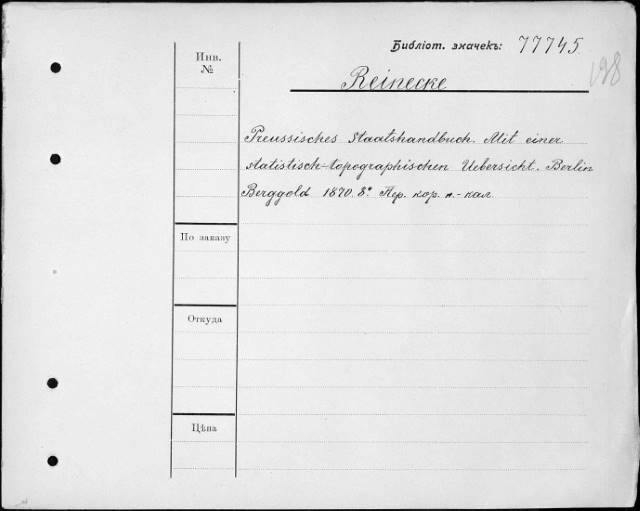 Библіот. значекъ: 77745
198
Инв.
№
Reinecke
Preussisches Staatshandbuch. Mit einer
statistisch-topographischen Uebersicht. Berlin
Berggold 1870. 8° Пер. кор. п.-кал.
По заказу
Откуда
Цѣна